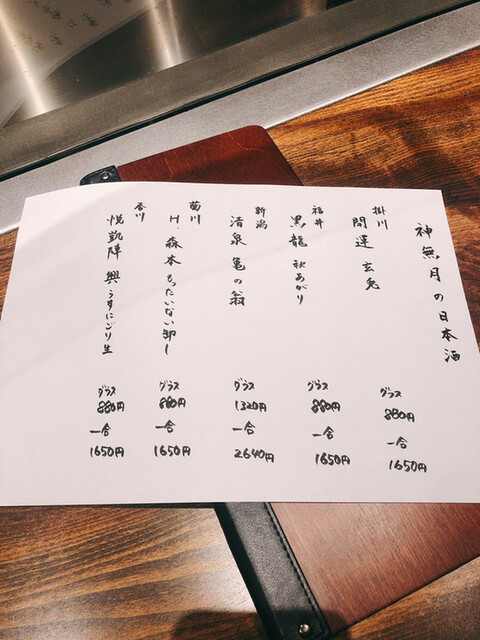 神無月の日本酒
掛川
開運 玄兎
グラス
880円
一合
1650円
福井
黒龍 秋あがり
グラス
880円
一合
1650円
新潟
清泉 亀の翁
グラス
1320円
一合
2640円
菊川
H、森本 もったいない卸し
グラス
880円
一合
1650円
香川
悦凱陣 興 うすにごり生
グラス
880円
一合
1650円